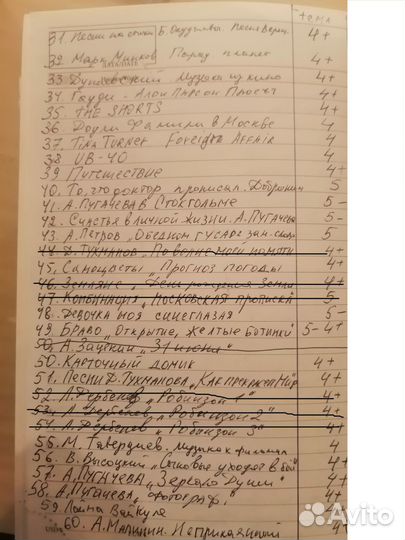 31. Песни на стихи Б. Окуджавы. 4+
32 Марк Минков Парад планет 4+
33 Дунаевский. Музыка из кино 4+
34 Гауди. Алан Парсон Проект 4+
35. THE SHORTS 4+
36 Доули Фамили в Москве 4
37. Tina Turner Foreign Affair 4
38 UB-40 4
39 Путешествие 4+
40. То, что доктор прописал. Добрынин 5
41. А. Пугачева в Стокгольме 5-
42. Счастье в личной жизни. А. Пугачева 5-
43. А Петров „О бедном гусаре 5-
44. Д. Тухманов „По волне моей памяти 4+
45. Самоцветы „Прогноз погоды 4+
46. Земляне „День рождения Земли 4+
47. Комбинация „Московская прописка 5
48. Девочка моя синеглазая 5-
49. Браво „Открытие, Желтые ботинки" 5- 4+
50. А. Зацепин „31 июня"
50. Карточный домик 4+
51. Песни Д. Тухманова „Как прекрасен мир 4+
52. Л. Дербенев „Робинзон 1" 4+
53. Л. Дербенев „Робинзон 2" 4+
54. Л. Дербенев „Робинзон 3" 4+
55. М. Таривердиев. Музыка к фильмам 4
56. В. Высоцкий „Сыновья уходят в бой 4+
57. А. Пугачева „Зеркало души" 4
58. А. Пугачева „Фотограф" 4+
59 Лайма Вайкуле 4
60. А. Малинин. Неприкаянный 4+
Avito